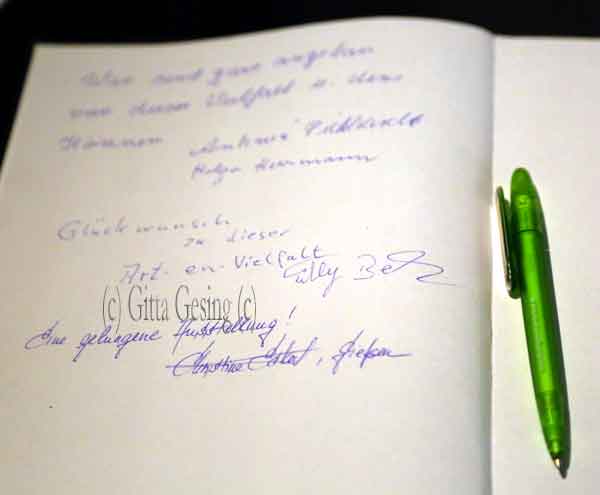 Wir sind ganz angetan
von dieser Vielfalt u. dem
Können
Helga Herrmann
Glückwunsch
zu dieser
Art-en-Vielfalt
(c) Gitta Gesing (c)
Eine gelungene Ausstellung!
Gießen